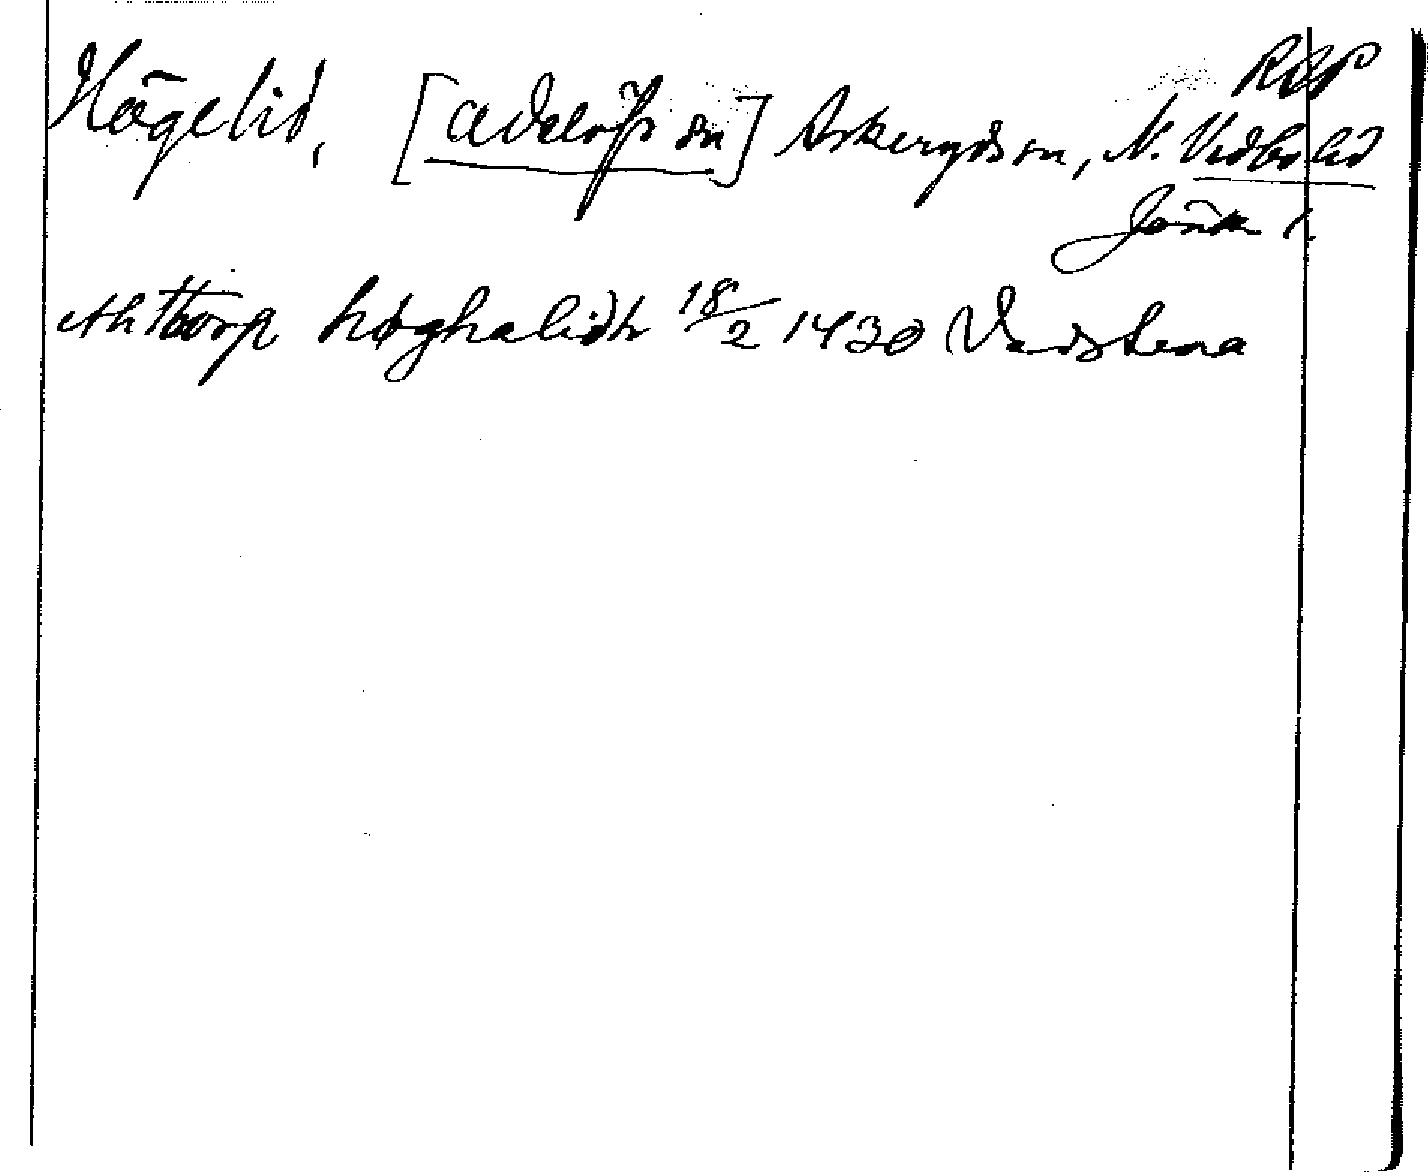 RAP
Högelid, [Adelöfs sn] Askeryds sn, N. Vedbo hd
Jönk l.
eth torp høghalidh 18/2 1430 Vadstena